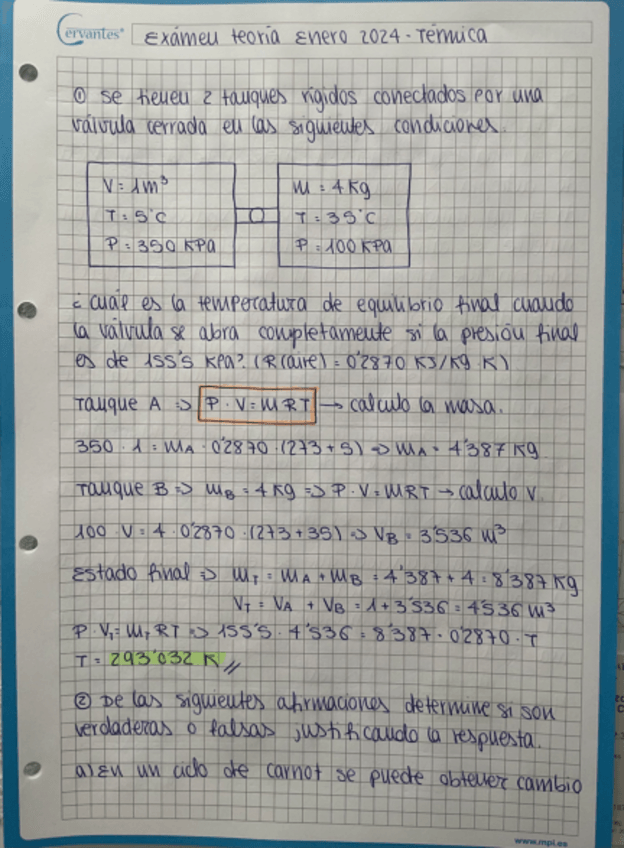 Cervantes
Exámen teoría Enero 2024 - Térmica
① Se tienen 2 tanques rígidos conectados por una
válvula cerrada en las siguientes condiciones.
V = 1m³
T = 5°C
P = 350 KPa
m = 4Kg
T = 35°C
P = 100 KPa
¿cuál es la temperatura de equilibrio final cuando
la válvula se abra completamente si la presión final
es de 155'5 KPa? (R(aire) = 0'2870 KJ/Kg·K)
Tanque A => P·V = MRT → calculo la masa.
350 · 1 = MA · 0'2870 · (273+5) => MA = 4'387 Kg
Tanque B => MB = 4Kg => P·V = MRT → calculo V
100 · V = 4 · 0'2870 · (273+35) => VB = 3'536 m³
Estado final => MT = MA + MB = 4'387 + 4 = 8'387 Kg
VT = VA + VB = 1 + 3'536 = 4'536 m³
P·VT = MT RT => 155'5 · 4'536 = 8'387 · 0'2870 · T
T = 293'032 K //
② De las siguientes afirmaciones determine si son
verdaderas o falsas justificando la respuesta.
a) En un ciclo de carnot se puede obtener cambio
www.mpl.es